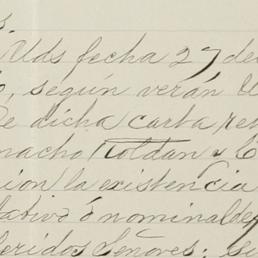 s.
Uds fecha 27 de
, según verán U
de dicha carta re
nacho Roldan y C
ion la existencia
lativo ó nominal de
feridos Señores; se